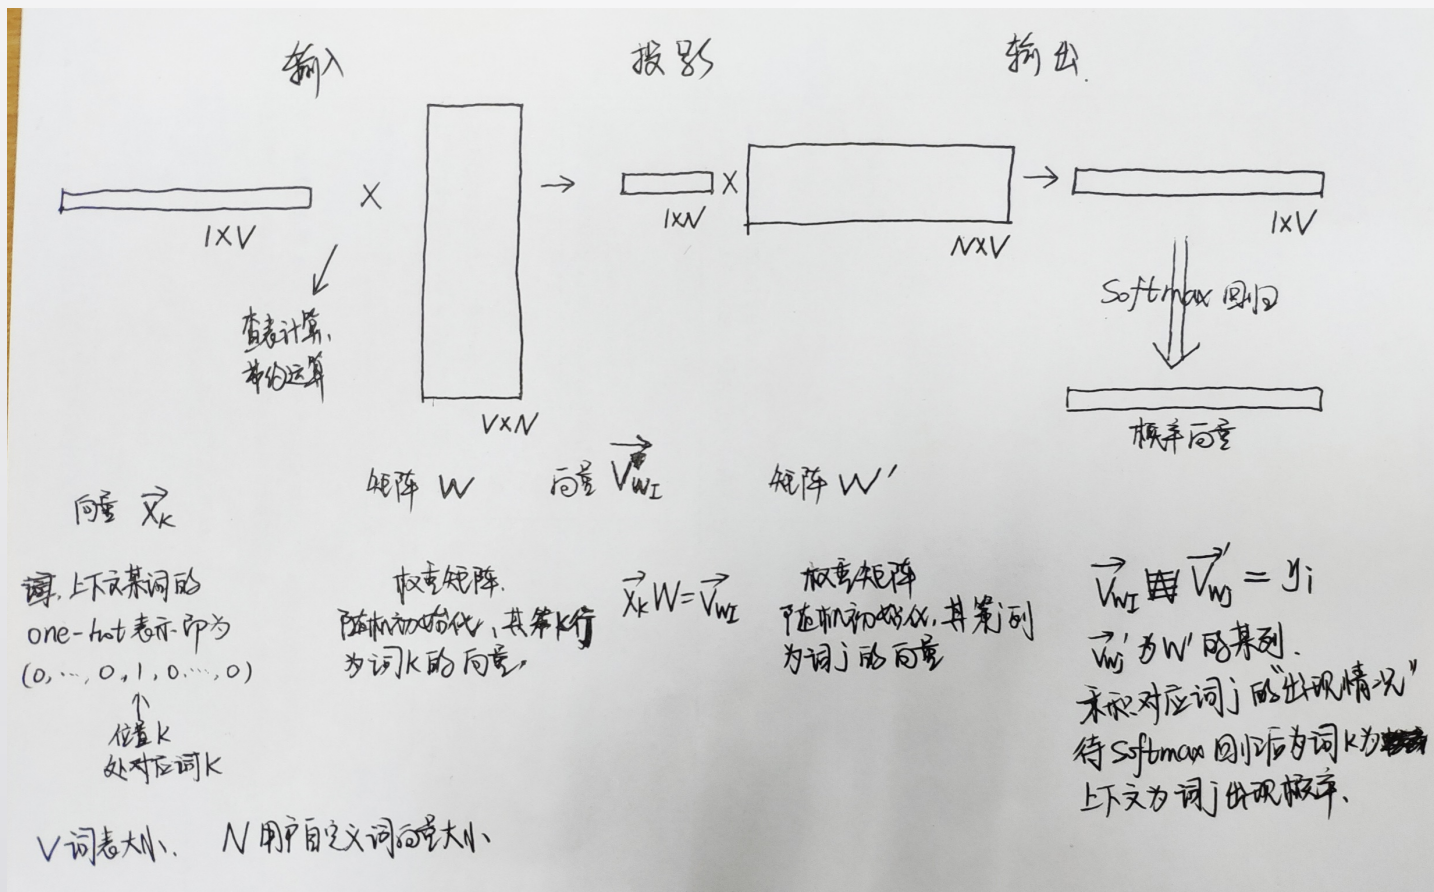 输入
投影
输出
X
→
X
→
1XV
1XN
NXV
1XV
查表计算,
节约运算
Softmax 回归
VXN
概率向量
向量 X_K
矩阵 W
向量 V_{W_I}
矩阵 W'
上下文某词的
one-hot 表示即为
(0, ..., 0, 1, 0, ..., 0)
↑
位置K
处对应词K
权重矩阵.
随机初始化,其第K行
为词K的向量,
X_K W = V_{W_I}
权重矩阵
随机初始化,其第j列
为词j的向量
V_{W_I} V'_{W_j} = y_i
V'_{W_j} 为W'的某列.
乘积对应词j的"出现情况"
待Softmax回归后为词K为
上下文为词j出现概率.
V 词表大小. N 用户自定义词向量大小.